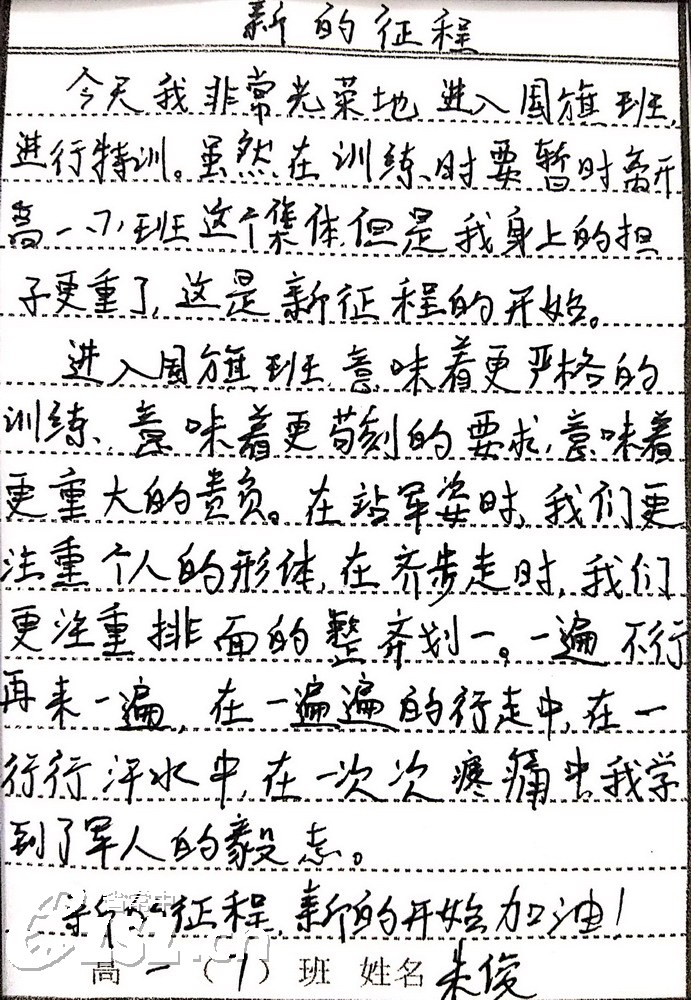 新的征程
今天我非常光荣地进入国旗班,
进行特训。虽然在训练时要暂时离开
高一、7、班这个集体,但是我身上的担
子更重了,这是新征程的开始。
进入国旗班,意味着更严格的
训练、意味着更苟刻的要求,意味着
更重大的责负。在站军姿时,我们更
注重个人的形体,在齐步走时,我们
更注重排面的整齐划一。一遍不行
再来一遍,在一遍遍的行走中,在一
行行汗水中,在一次次疼痛中我学
到了军人的毅志。
新的征程,新的开始加油!
高一(7)班 姓名 朱俊